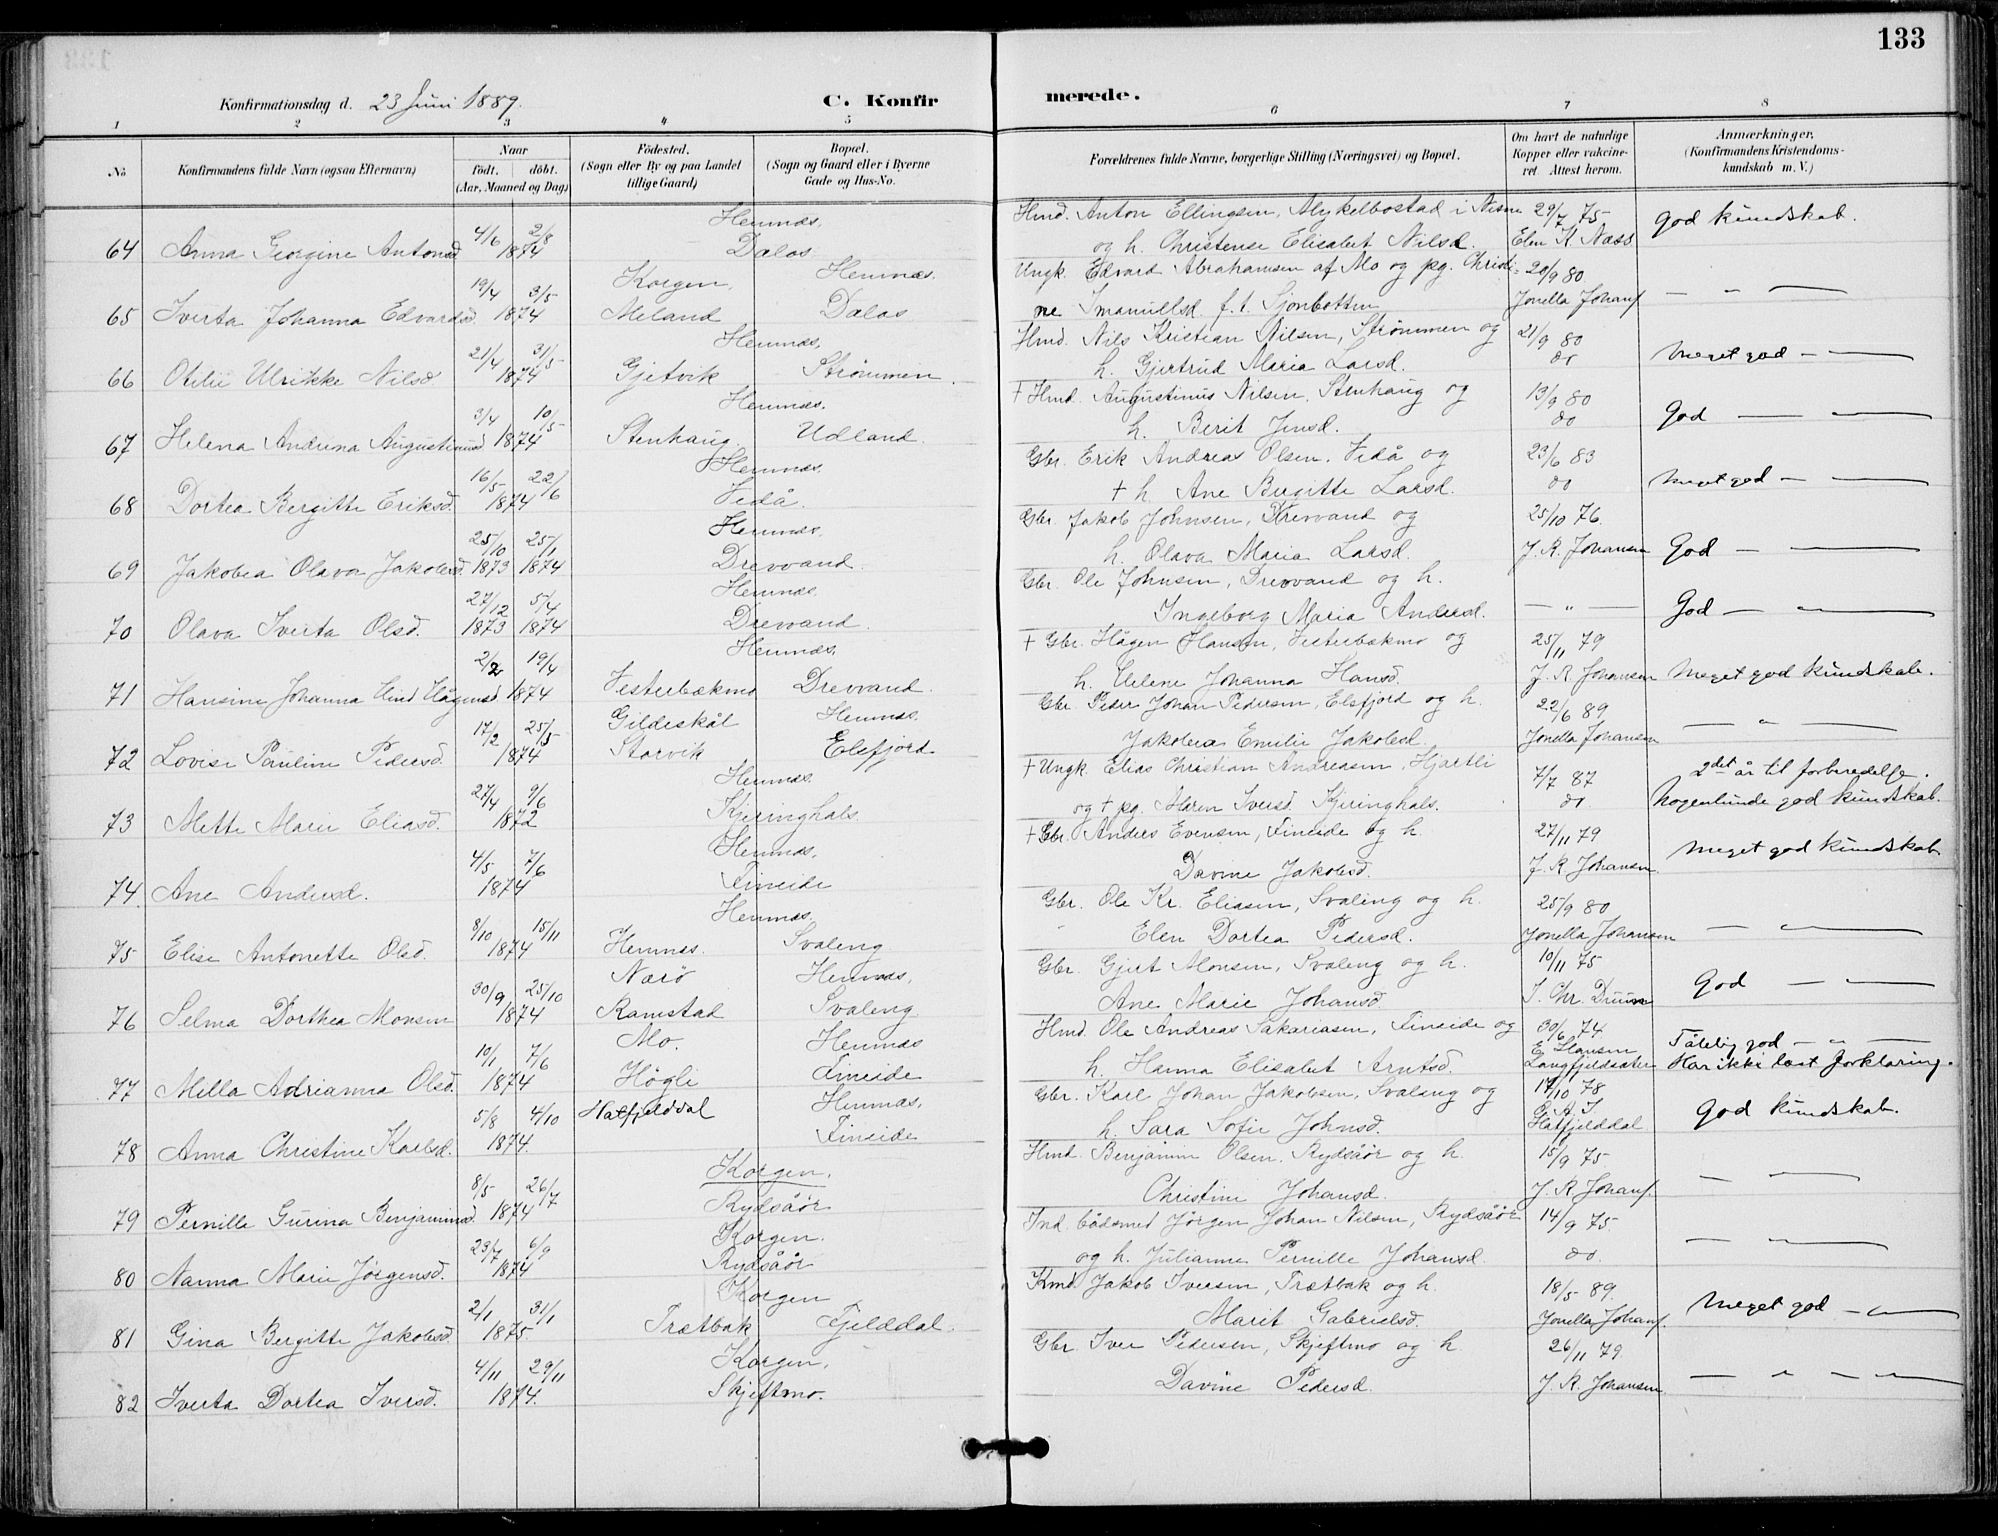 133
Konfirmationsdag d. 23 Juni 1889. C. Konfirmerede.
1 2 3 4 5 6 7 8
No Konfirmandens fulde Navn (ogsaa Efternavn) Naar födt. döbt. (Aar, Maaned og Dag) Födested. (Sogn eller By og paa Landet tillige Gaard) Bopæl. (Sogn og Gaard eller i Byerne Gade og Hus-No. Forældrenes fulde Navne, borgerlige Stilling (Næringsvei) og Bopæl. Om havt de naturlige Kopper eller vakcineret. Attest herom. Anmærkninger. (Konfirmandens Kristendomskundskab m. V.)
Hemnæs. Hmd. Anton Ellingsen, i Næsne 29/7 75 God kundskab.
64 Anna Georgine Antonsd 4/6 2/8 1874 Dalos og h. Christense Elisabet Nilsd. Elen K. Næss
Korgen. Hemnæs. Ungk. Edvard Abrahamsen af Mo og pg. Christi- 20/9 80
65 Iverta Johanna Edvardsd. 19/4 3/5 1874 Meland Dalos ne Imanuelsd. f. t. Sjonbotten Jonella Johans. — " —
Hemnæs. Hmd. Nils Kristian Nilsen, Strømmen og 21/9 80
66 Otilie Ulrikke Nilsd 21/4 31/5 1874 Gjetvik Strømmen. h. Gjertrud Maria Larsd. do Meget god — —
Hemnæs. † Hmd. Augustinus Nilsen, Stenhaug og 13/9 80
67 Helena Andrina Augustinusd 3/4 10/5 1874 Stenhaug. Udland. h. Berit Jensd. do God — —
Hemnæs. Gbr. Erik Andreas Olsen. Vedå og 23/6 83
68 Dortea Bergitte Eriksd. 16/5 22/6 1874 Vedå. † h. Ane Birgitte Larsd. do Meget god — —
Hemnæs. Gbr. Jakob Johnsen, Drevvand og 25/10 76.
69 Jakobea Olava Jakobsd. 25/10 1873 25/1 1874 Drevvand. h. Olava Maria Larsd. J. R. Johansen God — —
Hemnæs. Gbr. Ole Johnsen, Drevvand og h.
70 Olava Iverta Olsd. 27/12 1873 5/4 1874 Drevvand. Ingeborg Maria Andersd. — " — God — —
Hemnæs. † Gbr. Hågen Hansen, Vesterbækmo og 25/11 79
71 Hansine Johanna Hågensd 2/2 19/4 1874 Vesterbækmo Drevvand. h. Helene Johanna Hansd. J. R. Johansen Meget god kundskab.
Gildeskål Hemnæs. Gbr. Peder Johan Pedersen, Elsfjord og h. 22/6 89
72 Lovise Pauline Pedersd. 17/2 25/5 1874 Storvik Elsfjord Jakobea Emilie Jakobsd. Jonella Johansen — " —
Hemnæs. † Ungk. Elias Christian Andreasen, Hjartli 7/7 87 2det år til forberedelse.
73 Mette Marie Eliasd. 27/4 9/6 1872 Kjeringhals. og † pg. Maren Iversd. Kjeringhals. do Nogenlunde god kundskab.
Hemnæs. † Gbr. Anders Evensen, Fineide og h. 27/11 79
74. Ane Andersd. 4/5 7/6 1874 Fineide Davine Jakobsd. J. R. Johansen. Meget god kundskab.
Hemnæs. Gbr. Ole Kr. Eliasen, Svaleng og h. 25/9 80
75 Elise Antonette Olsd. 8/10 15/11 1874 Hemnæs. Svaleng Elen Dortea Pedersd. Jonella Johansen — —
Nærö Hemnæs, Gbr. Gjert Monsen, Svaleng og h. 10/11 75
76 Selma Dorthea Monsen 30/9 25/10 1874 Ramstad Svaleng Ane Marie Johansd. God — —
Mo. Hemnæs Hmd. Ole Andreas Sakariasen, Fineide og 30/6 74 Tålelig god — " —
77 Mella Adrianna Olsd. 10/1 7/6 1874 Högli Fineide h. Hanna Elisabet Arntsd. E. Hansen Langfjeldsæter Har ikke læst forklaring.
Hatfjelddal Hemnæs, Gbr. Karl Johan Jakobsen, Svaleng og 17/10 78 God kundskab.
78 Anna Christine Karlsd. 5/8 4/10 1874. Fineide h. Sara Sofie Johnsd. Hatfjelddal
Korgen. Hmd. Benjamin Olsen, Rydsåör og h. 15/9 75
79 Pernille Gurina Benjaminsd. 8/5 26/7 1874 Rydsåör Christine Johansd. J. R. Johans. — —
Korgen. Ind. bådsmed Jörgen Johan Nilsen, Rydsåör 14/9 75
80 Nanna Marie Jörgensd. 23/7 6/9 1874 Rydsåör og h. Julianne Pernille Johansd. do. — —
Korgen Kmd. Jakob Iversen, Trætbak og h. 18/5 89.
81 Gina Bergitte Jakobsd 2/1 31/1 1875 Trætbak Fjelddal. Marit Gabrielsd. Jonella Johans. Meget god — —
Korgen. Gbr. Iver Pedersen, Skjeftmo og h. 26/11 79
82 Iverta Dortea Iversd. 4/11 29/11 1874. Skjeftmo. Davine Pedersd. J. R. Johansen. — " — —